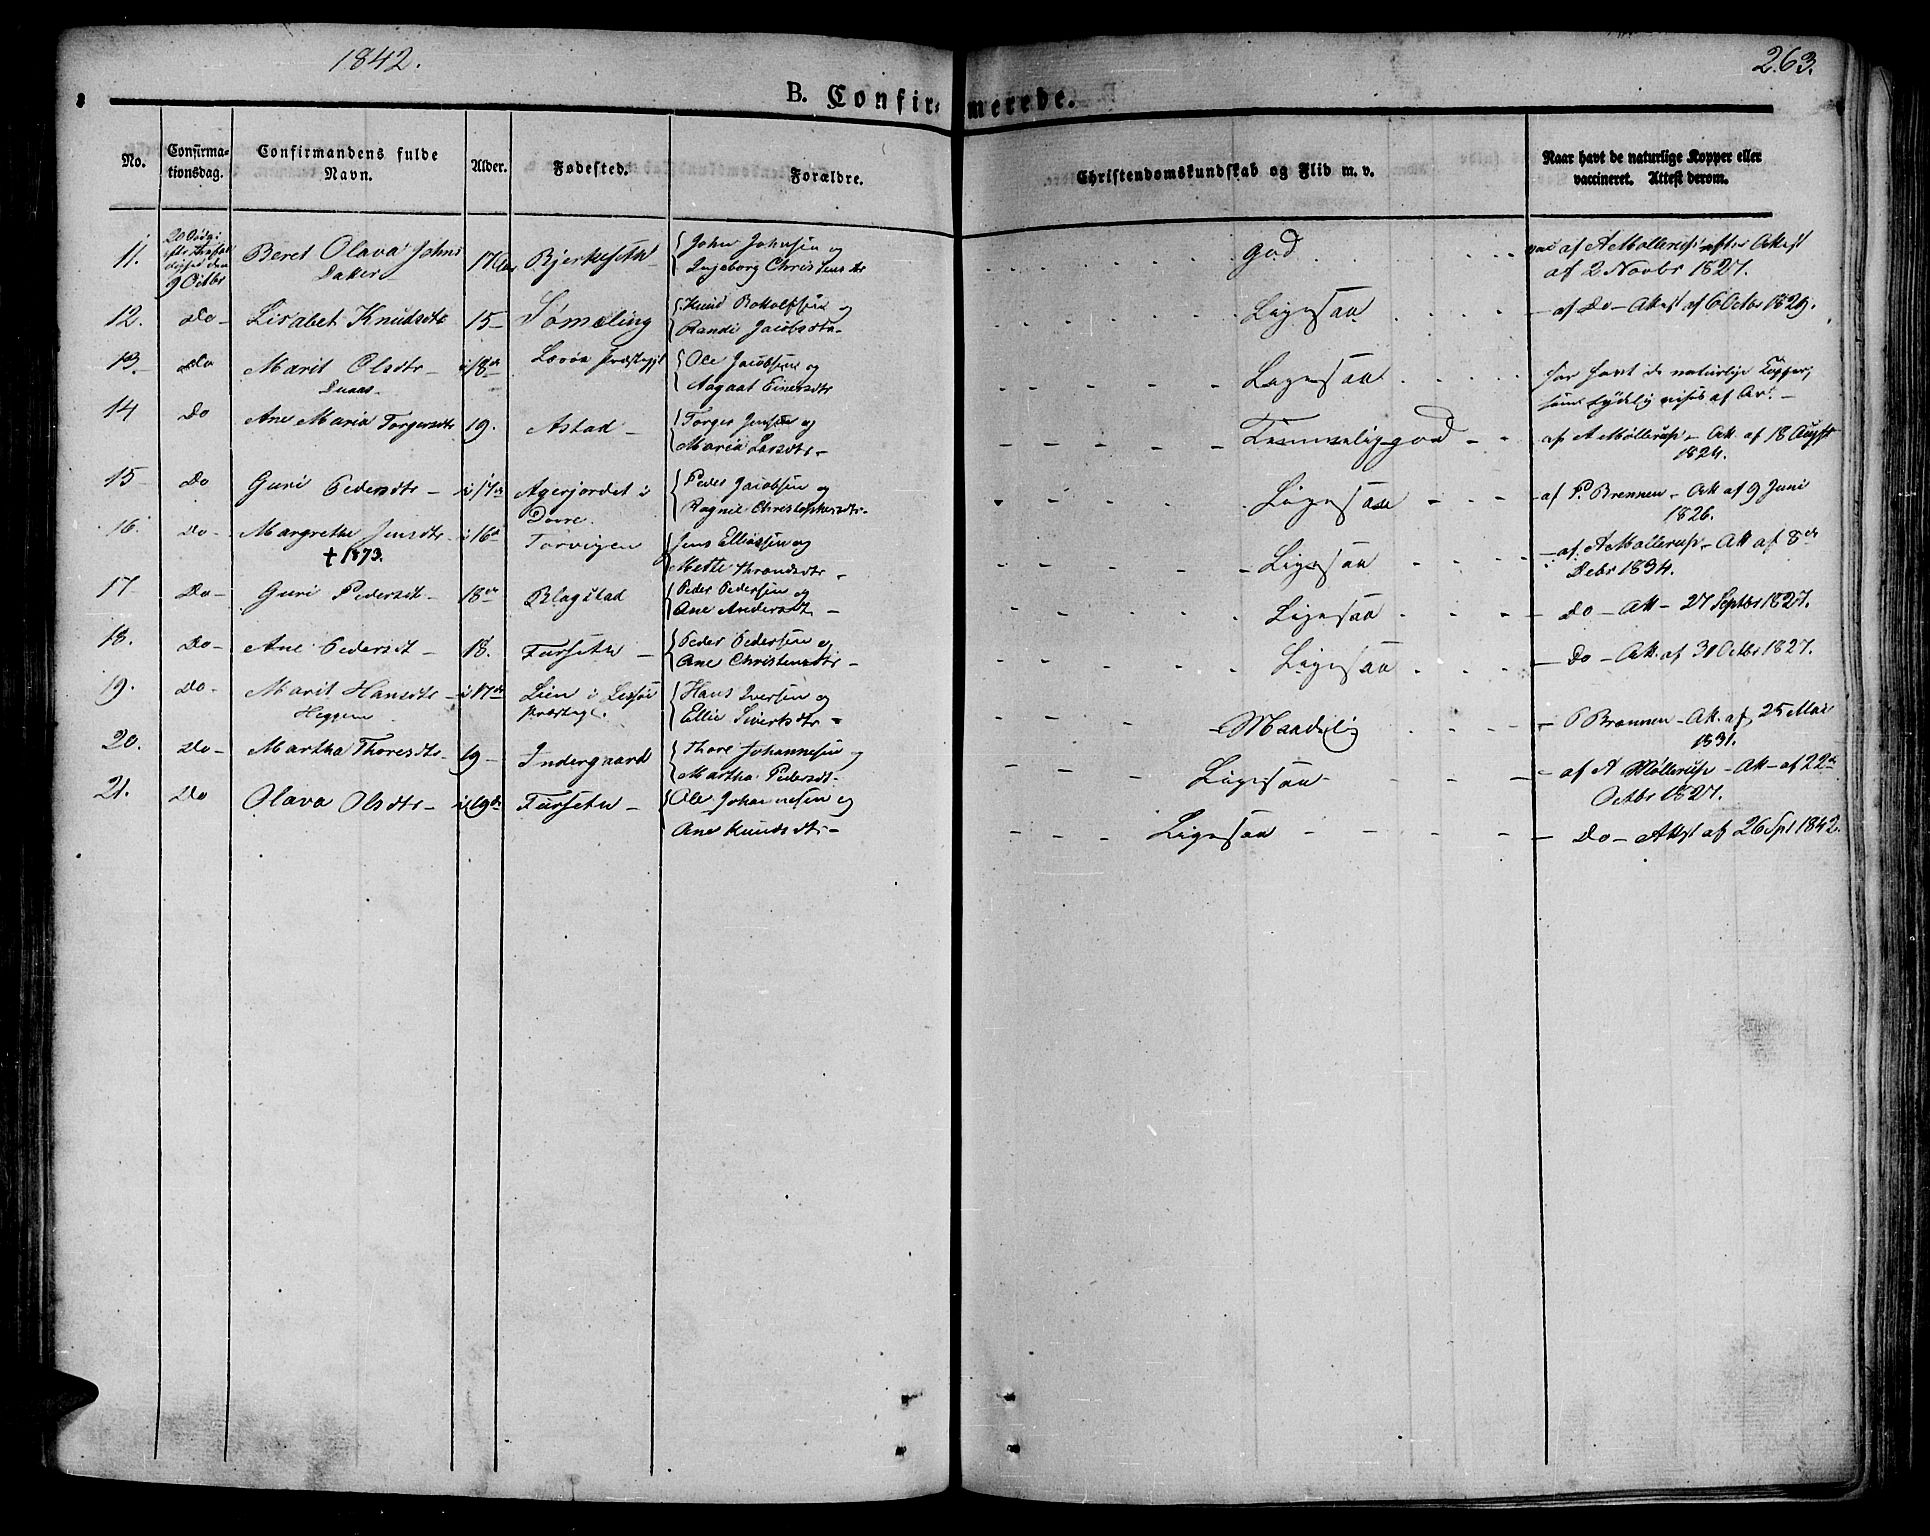 1842.
263.
B. Confirmerede.
No.
Confirmationsdag.
Confirmandens fulde Navn.
Alder.
Fødested.
Forældre.
Christendomskundskab og Flid m. v.
Naar havt de naturlige Kopper eller vaccineret. Attest derom.
11. 9 Octbr Beret Olava Johns Daker 17 Bjerkesetn John Johnsen og
Ingeborg Christensdtr
god
af A Møllerup efter Attest
af 2 Novbr 1827.
12. Do - Lisabet Knudsdtr 15 - Sømæling Knud Botolfsen og
Randi Jacobsdtr -
Ligesaa
- af Do - Attest af 6 Octbr 1829.
13. Do Marit Olsdtr - i 18de Præstegjl Ole Jacobsen og
Aagaat Einersdtr
Ligesaa
har havt de naturlige Kopper,
som tydelig vises af Ar. -
14 Do Ane Maria Torgersdtr 19. Astad - Torger Jensen og
Maria Larsdtr -
Temmelig god
af A Møllerup - Att. af 18 August
1824.
15 Do Guri Pedersdtr - i 17de Agerjordet i
Dovre.
Peder Jacobsen og
Ragnil Christophersdtr -
Ligesaa
- af P. Brennen - Att af 9 Juni
1826.
16. Do - Margrethe Jensdtr - i 16de Torvigen Jens Elliassen og
† 1873.
Mette Throndsdtr -
Ligesaa
- af A Møllerup - Att af 8de
Debr 1834.
17 Do - Guri Pedersdt - 18de Blagstad Peder Pedersen og
Ane Andersdt -
Ligesaa
- Do - Att - 27 Septbr 1827.
18. Do - Ane Pedersdt - 18. Fursetn - Peder Pedersen og
Ane Christensdtr -
Ligesaa
- Do - Att. af 31 Octbr 1827.
19. Do - Marit Hansdtr - i 17de Lien i Lessøe
Heggem
Præstegl.
Hans Iversen og
Ellie Sivertsdtr -
- Maadelig
- P Brennen - Att. af 25 Mai
1831.
20. Do - Martha Thoresdtr - 19 - Indergaard Thore Johannesen og
Martha Pedersdt -
Ligesaa -
- af A Møllerup - Att - af 22de
Octbr 1827.
21. Do Olava Olsdtr - i 19de Fursetn - Ole Johannesen og
Ane Knudsdtr -
Ligesaa
- Do - Attest af 26 Spt 1842.